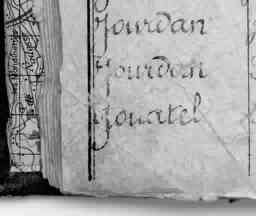 Jourdan
Jourdan
Jouatel